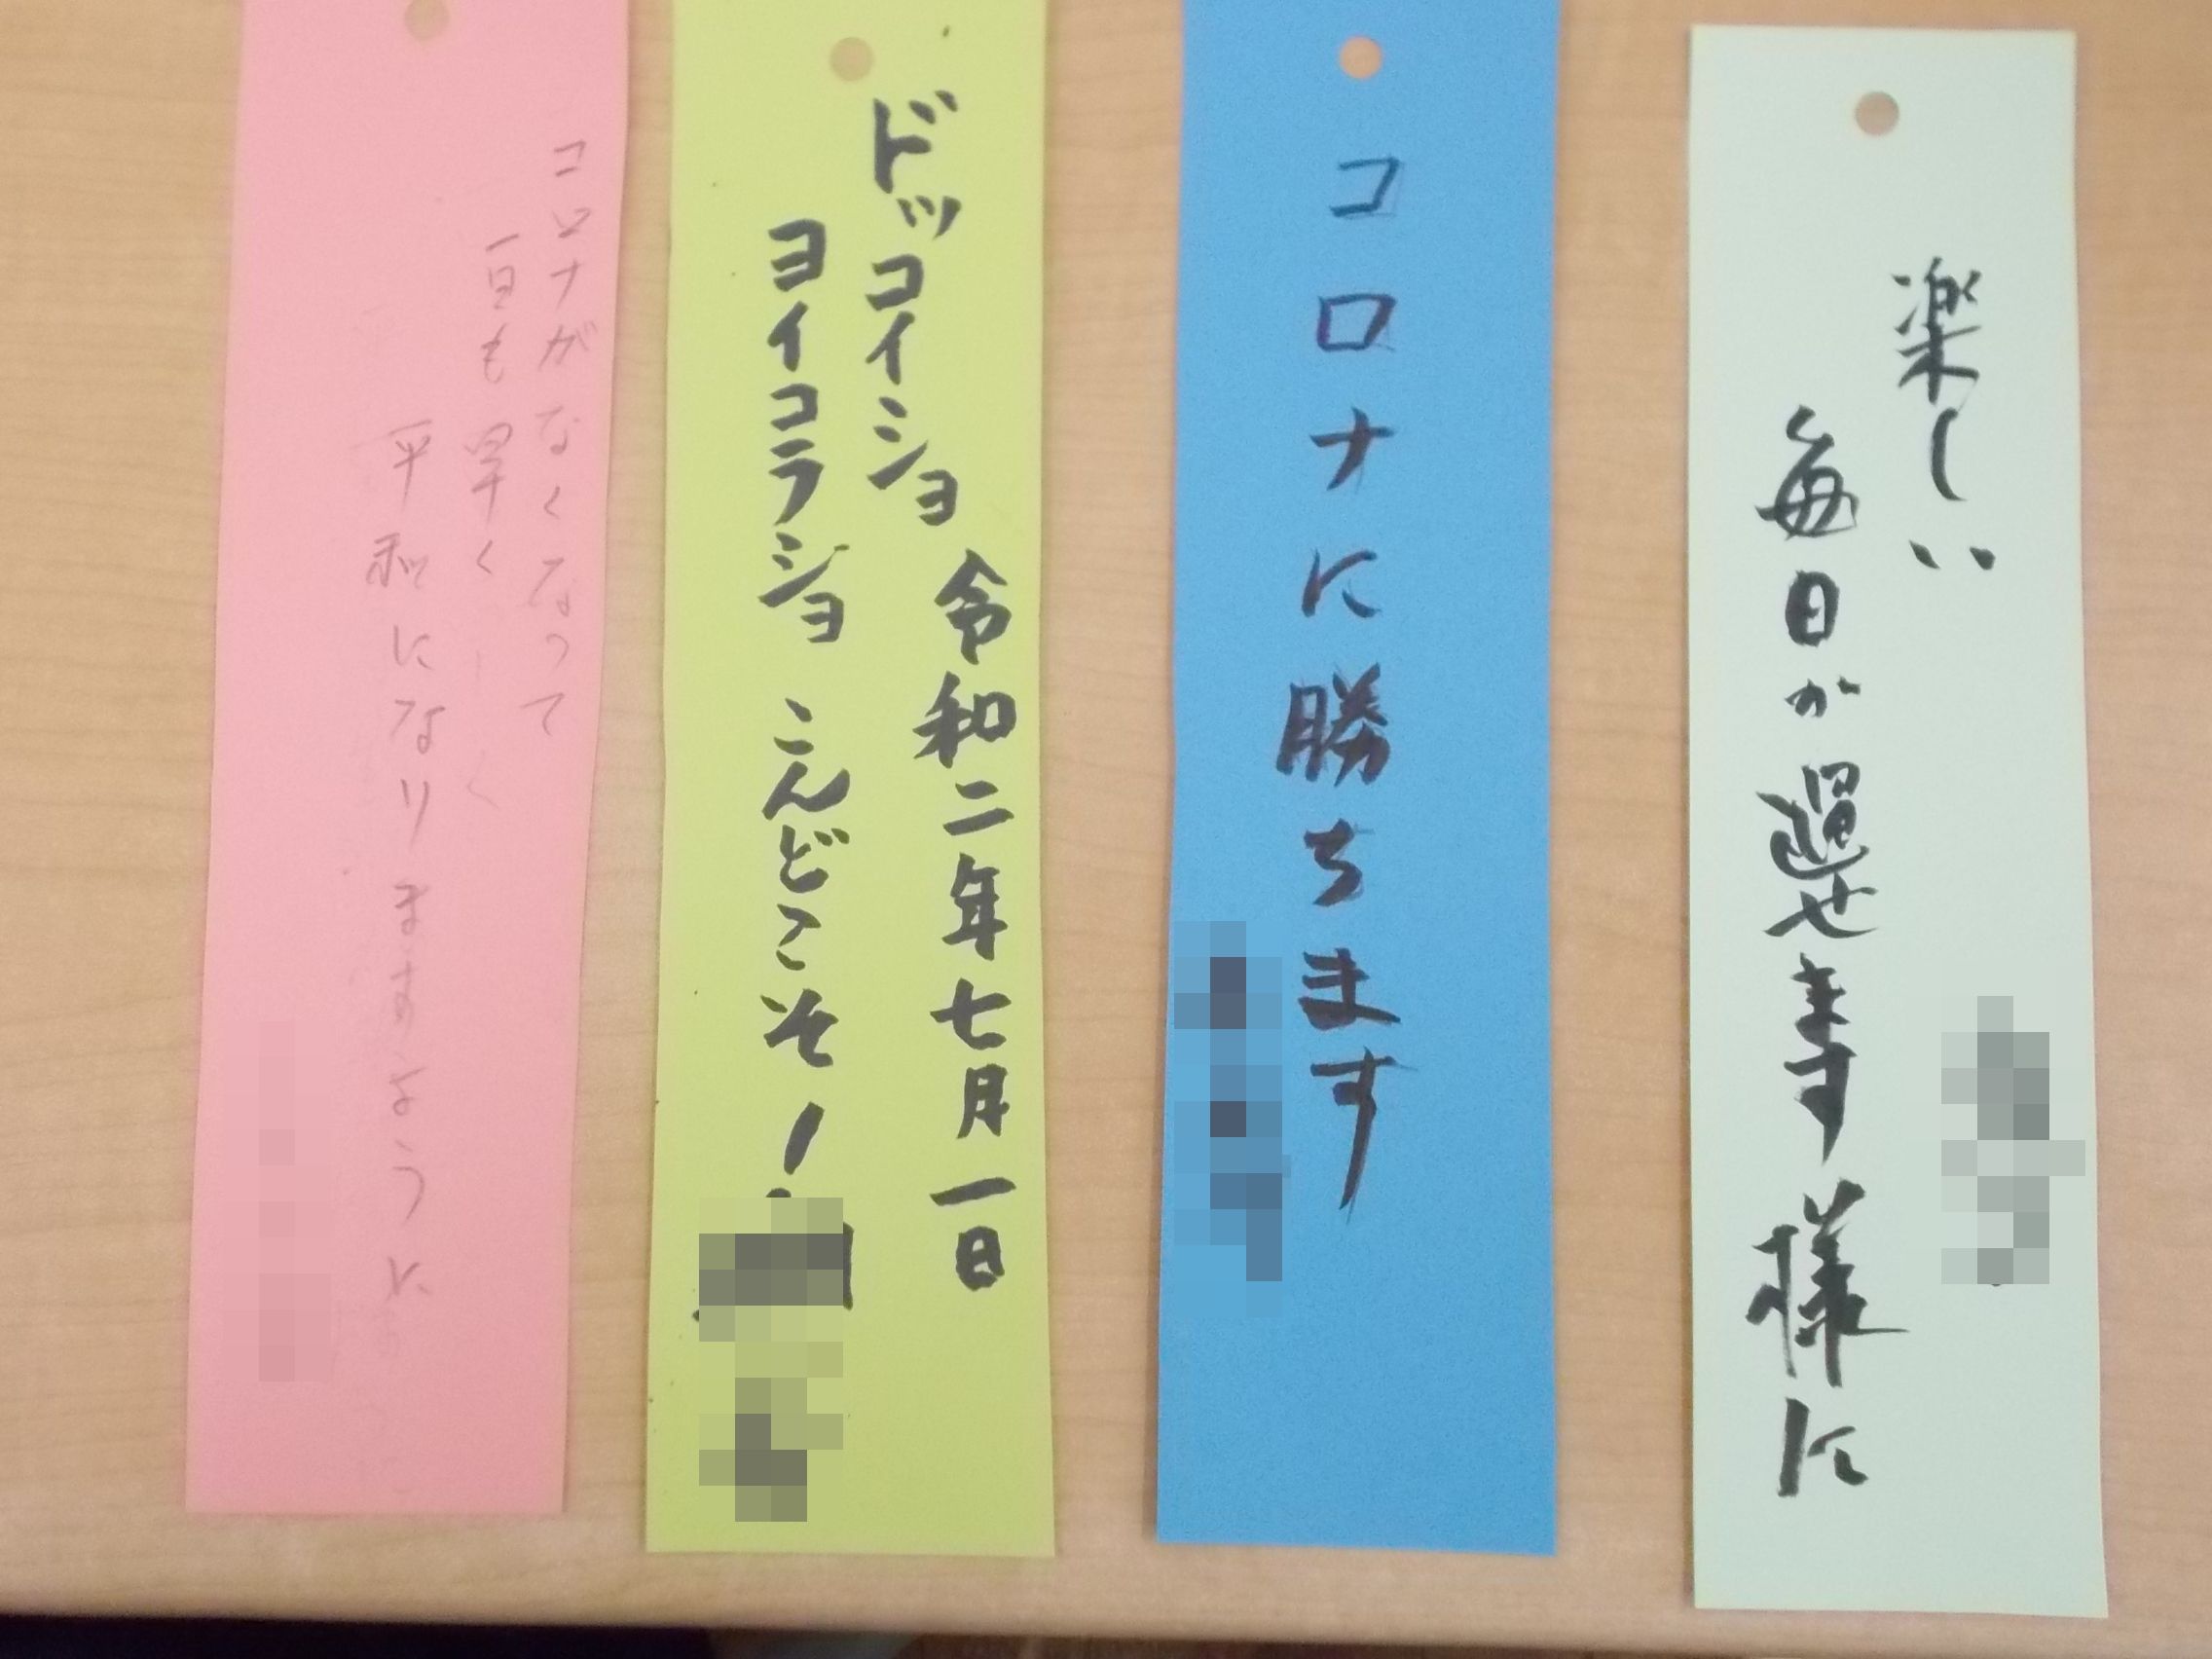 楽しい
毎日が過せます様に
コロナに勝ちます
令和二年七月一日
ドッコイショ
ヨイコラショ こんどこそ!
コロナがなくなって
一日も早く
平和になりますように